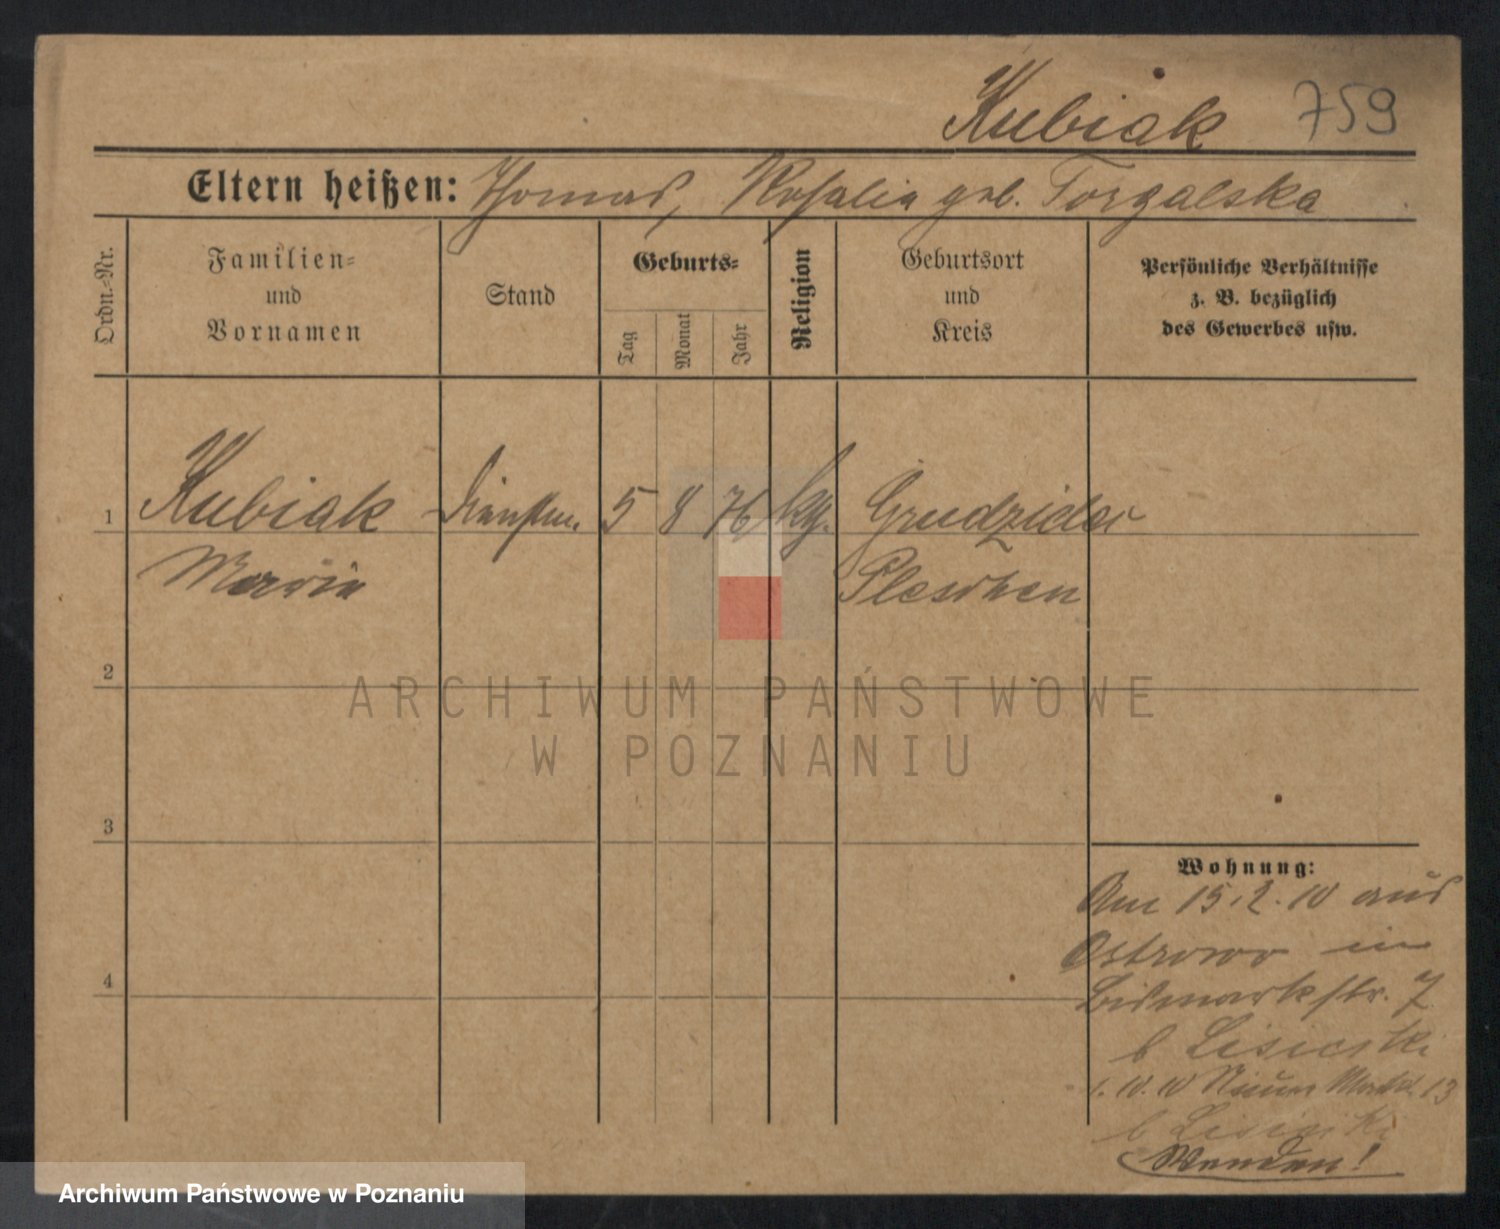 Kubiak 759
Eltern heißen: Thomas, Rosalia geb. Torzalska
Ordn.=Nr.
Familien=
und
Vornamen
Stand
Geburts=
Tag
Monat
Jahr
Religion
Geburtsort
und
Kreis
Persönliche Verhältnisse
z. B. bezüglich
des Gewerbes usw.
1 Kubiak 5 8 76 kth. Grudzielec
Maria Pleschen
2
3
4
Wohnung:
Am 15.2.10 aus
Ostrowo in
Bismarkstr. 7
b Lisiecki
1.10.10 Neuer Markt 13
b Lisiecki
Wenden!
ARCHIWUM PAŃSTWOWE
W POZNANIU
Archiwum Państwowe w Poznaniu